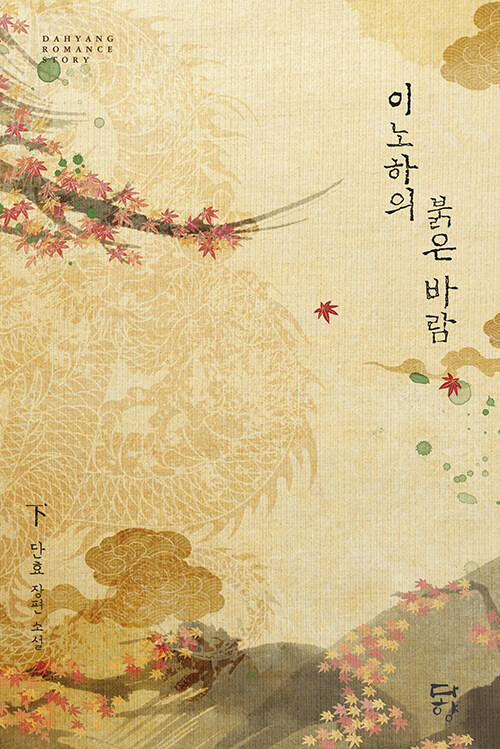 DAHYANG
ROMANCE
STORY
이노하의
붉은 바람
下
단효 장편 소설
다향